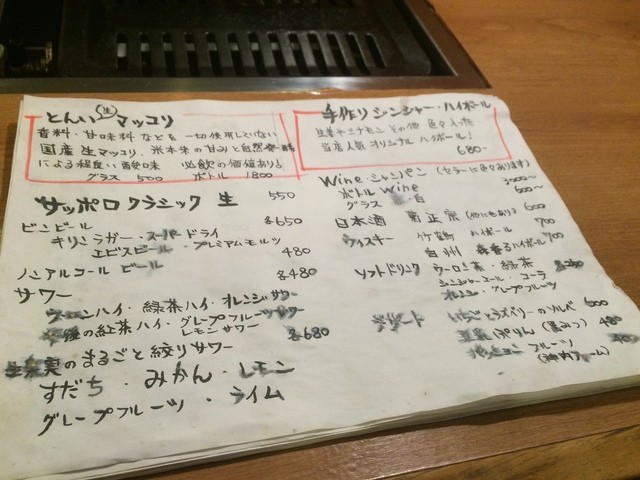 とんい 生 マッコリ
香料・甘味料などを一切使用していない
国産生マッコリ、米本来の甘みと自然発酵
による程良い酸味 必飲の価値あり
グラス 500 ボトル 1800
サッポロクラシック 生 550
ビンビール 各650
キリンラガー・スーパードライ
エビスビール・プレミアムモルツ
ノンアルコール ビール 480
サワー 各480
ウーロンハイ・緑茶ハイ・オレンジサワー
の紅茶ハイ・グレープフルーツサワー
レモンサワー
生果実のまるごと絞りサワー 各680
すだち・みかん・レモン
グレープフルーツ・ライム
手作りジンジャー・ハイボール
生姜やシナモン その他 色々入った
当店人気 オリジナル ハイボール!
680-
Wine・シャンパン (セラーに色々あります)
ボトル Wine 3000~
グラス 白 500~
日本酒 菊正宗 (他にもあり) 600
ウィスキー 竹鶴 ハイボール 700
白州 森香るハイボール 700
ソフトドリンク ウーロン茶・緑茶
ジンジャーエール・コーラ
オレンジ・グレープフルーツ
デザート いちごとラズベリーのソルベ 500
豆乳ぷりん (黒みつ) 480
フルーツ